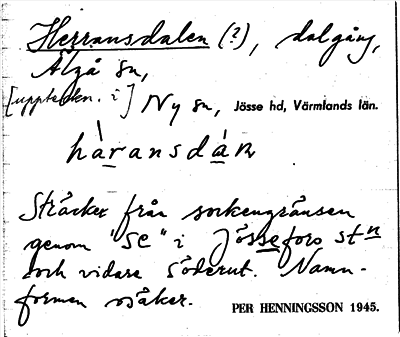 Herransdalen (?), dalgång,
Älgå sn,
[uppteckn. i] Ny sn, Jösse hd, Värmlands län.
hàransdàn
Sträcker från sockengränsen
genom "SE" i Jösseforss stn
och vidare söderut. Namn-
formen osäker.
PER HENNINGSSON 1945.